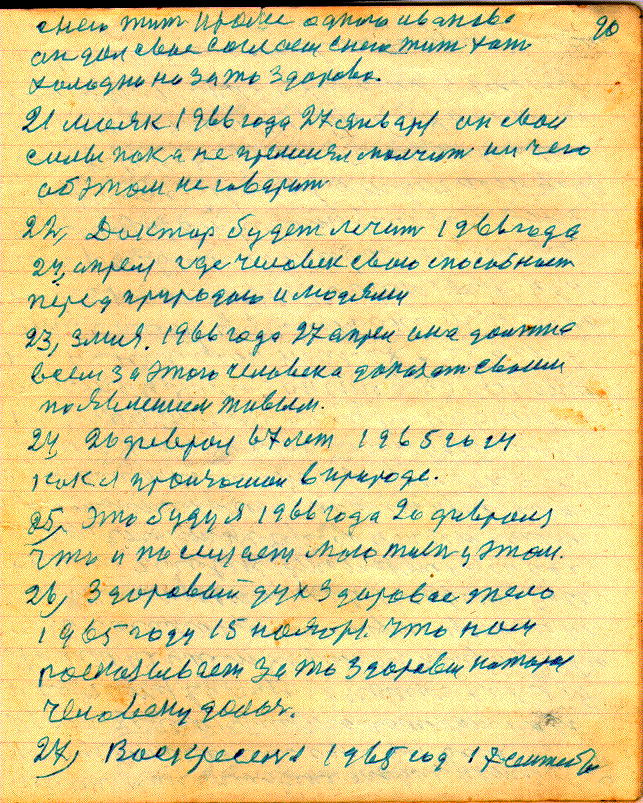 90
снего тит кроме одного иванова
он дал свое согласи снего тит хат
холодно но зато здорово.
21 маяк 1966 года 27 январ он свои
силы пока не применял молчит ничего
об этом не говарит
22, Доктор будет лечит 1966 года
24, апрел где человек свою способност
перед природою и людями
23, змия. 1966 года 27 апрел она должна
всем за этого человека доказат своим
появлением живым.
24 20 феврал 67 лет 1965 году
как я произошол в природе.
25, Это буду я 1966 года 20 феврал
что и послужает мого тилу этом.
26, Здоровый дух здоровое тело
1965 году 15 ноябр. что нам
росказывает за то здорове каторое
человеку дал.
27, Воскресени 1965 год 17 сентябр